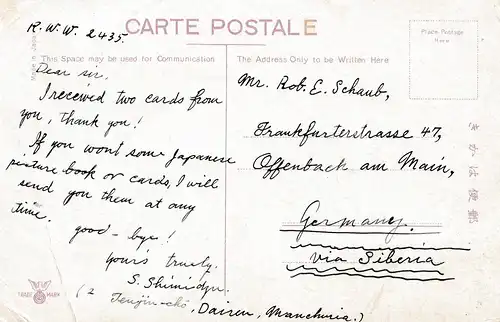 R.W.W. 2435.
CARTE POSTALE
Made in Japan
This Space may be used for Communication
The Address Only to be Written Here
Place Postage
Here
Dear sir,
I received two cards from
you, thank you!
If you wont some Japanese
picture book or cards, I will
send you them at any
time.
good-bye!
yours truely.
S. Shimidzu.
(2
Tenjin-chō, Dairen, Manchuria.)
Mr. Rob. E. Schaub,
Frankfurterstrasse 47,
Offenbach am Main,
Germany.
via Siberia
きかは便郵
TRADE MARK